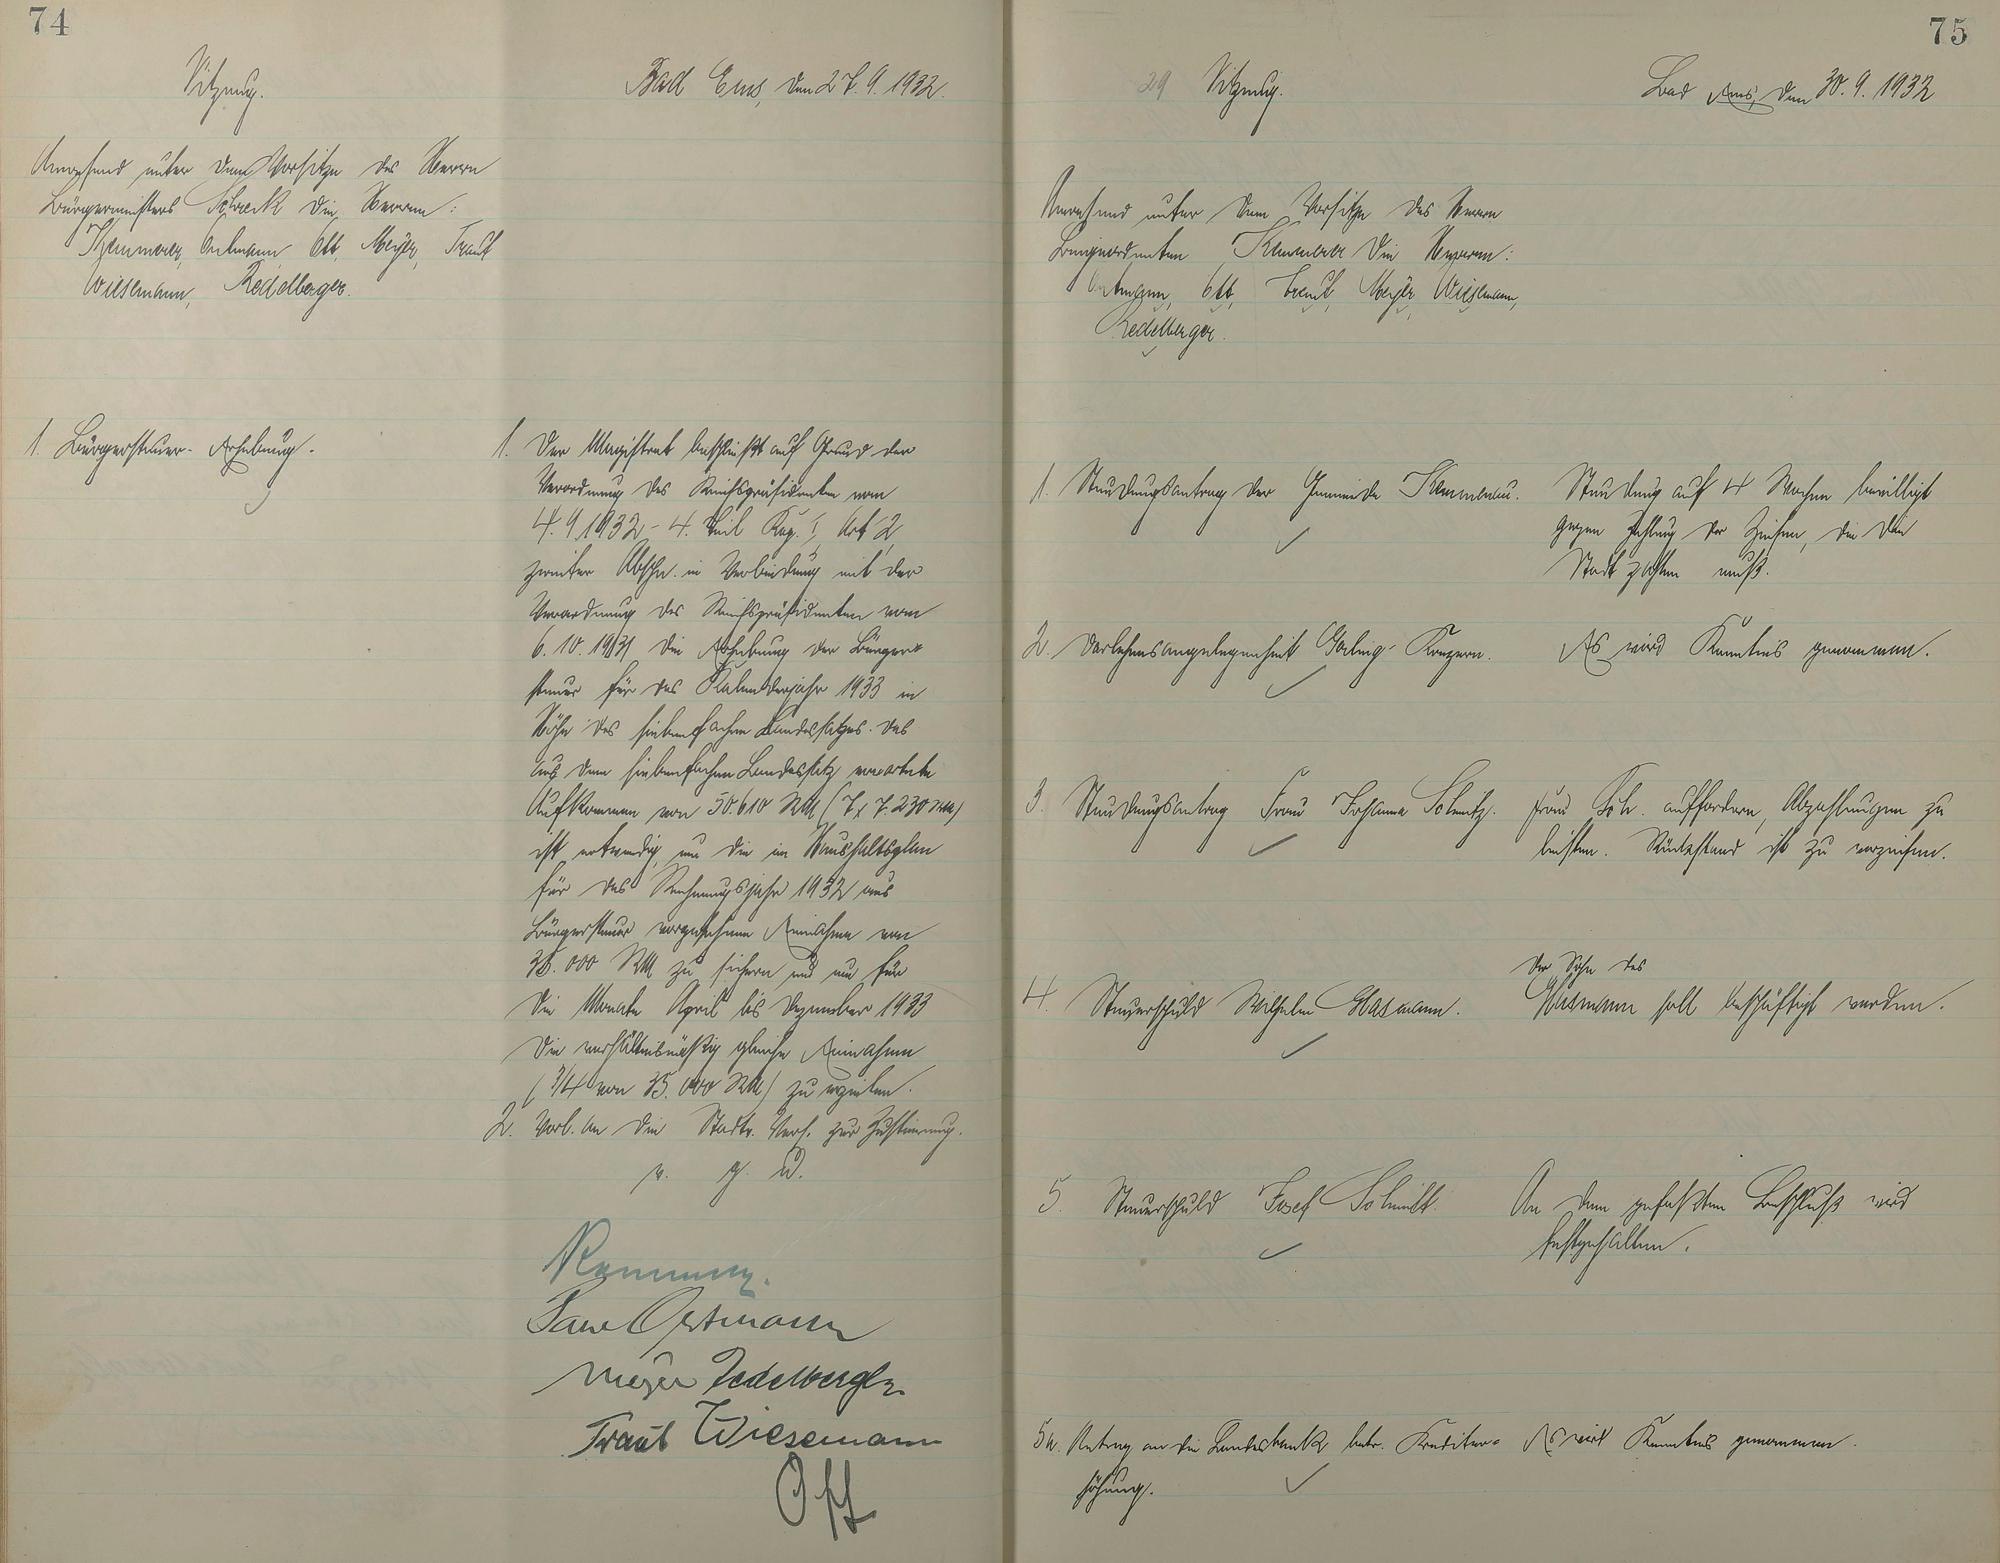 74
Sitzung.
Bad Ems, den 27.9.1932.
Anwesend unter dem Vorsitze des Herrn
Bürgermeisters Schreck die Herren:
Kemmerer, Oertmann Ott, Meyer, Traut
Wiesemann, Redelberger.
1. Bürgersteuer-Erhebung.
1. Der Magistrat beschließt auf Grund der
Verordnung des Reichspräsidenten vom
4.9.1932 - 4. Teil Kap. I, Art 2
zweiter Abschn. in Verbindung mit der
Verordnung des Reichspräsidenten vom
6.10.1931 die Erhebung der Bürger-
steuer für das Kalenderjahr 1933 in
Höhe des siebenfachen Landessatzes. Das
aus dem siebenfachen Landessatz erwartete
Aufkommen von 50.610 RM (7 x 7.230 RM)
ist notwendig, um die im Haushaltsplan
für das Rechnungsjahr 1932 aus
Bürgersteuer vorgesehene Einnahme von
35.000 RM zu sichern und um für
die Monate April bis Dezember 1933
die verhältnismäßig gleiche Einnahme
(3/4 von 35.000 RM) zu erzielen.
2. Vorl. an die Stadtv. Vers. zur Zustimmung.
v. g. u.
Kemmerer.
Oertmann
Meyer Redelberger
Traut Wiesemann
Ott
75
29 Sitzung.
Bad Ems, den 30.9.1932
Anwesend unter dem Vorsitze des Herrn
Beigeordneten Kemmerer die Herren:
Oertmann, Ott, Traut, Meyer, Wiesemann,
Redelberger.
1. Stundungsantrag der Gemeinde Kemmenau.
Stundung auf 4 Wochen bewilligt
gegen Zahlung der Zinsen, die die
Stadt zahlen muß.
2. Darlehensangelegenheit Konzern.
Es wird Kenntnis genommen.
3. Stundungsantrag Frau Johanna Schmitz.
Frau Sch. auffordern, Abzahlungen zu
leisten. Rückstand ist zu verzinsen.
4. Steuerschuld Wilhelm Glasmann.
Der Sohn des
Glasmann soll beschäftigt werden.
5. Steuerschuld Josef Schmidt.
An dem gefaßten Beschluß wird
festgehalten.
5a. Antrag an die Landesbank betr. Krediter-
höhung.
Es wird Kenntnis genommen.